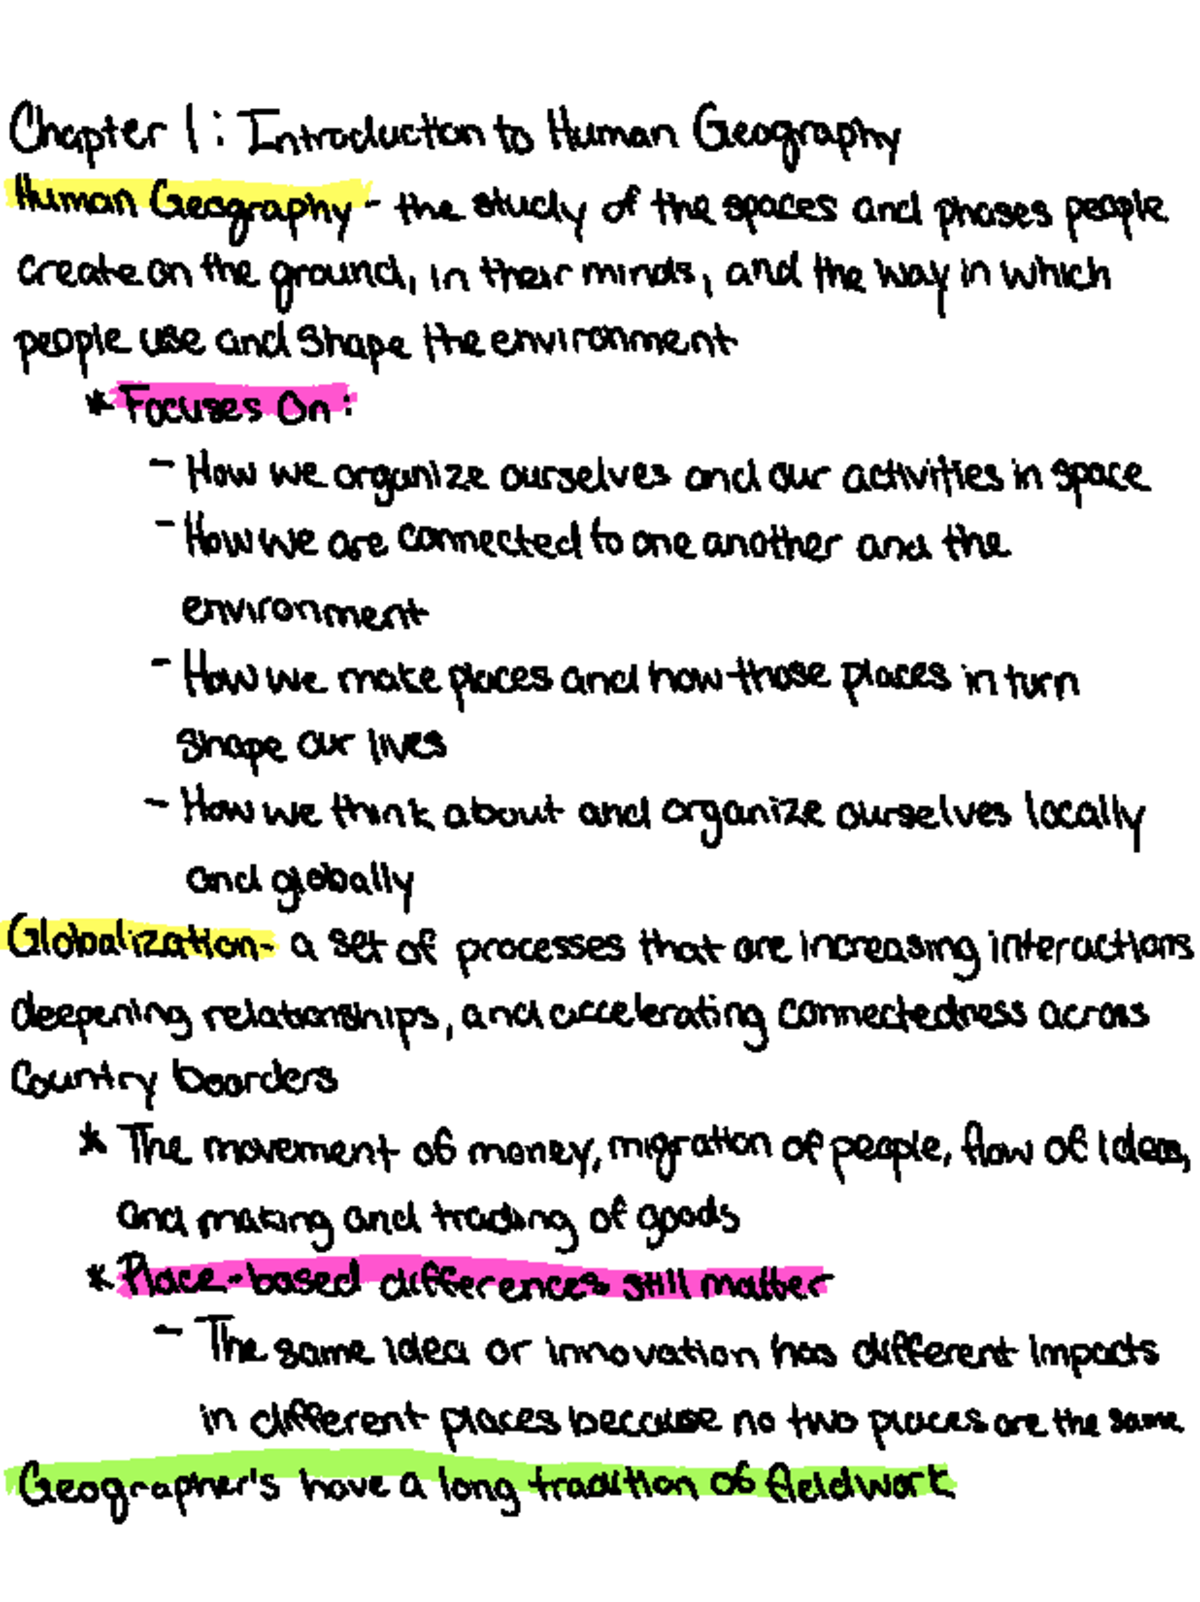 Chapter 1: Introduction to Human Geography
Human Geography - the study of the spaces and phases people
create on the ground, in their minds, and the way in which
people use and shape the environment
* Focuses On:
- How we organize ourselves and our activities in space
- How we are connected to one another and the
environment
- How we make places and how those places in turn
shape our lives
- How we think about and organize ourselves locally
and globally
Globalization- a set of processes that are increasing interactions
deepening relationships, and accelerating connectedness across
Country boarders
* The movement of money, migration of people, flow of ideas,
and making and trading of goods
* Place-based differences still matter
- The same idea or innovation has different impacts
in different places because no two places are the same
Geographer's have a long tradition of fieldwork